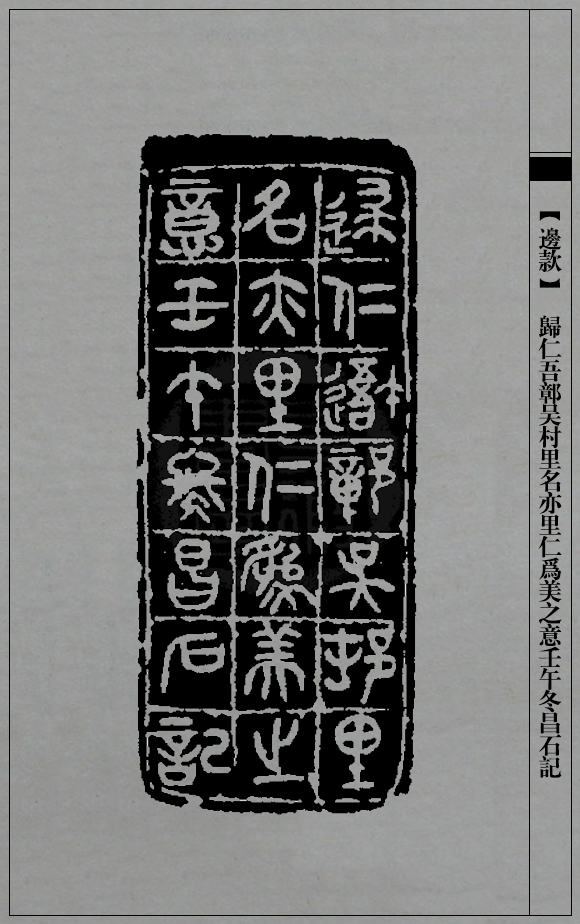 【邊款】 歸仁吾鄣吴村里名亦里仁爲美之意壬午冬昌石記
歸仁吾鄣吴邨里
名亦里仁爲美之
意壬午冬昌石記